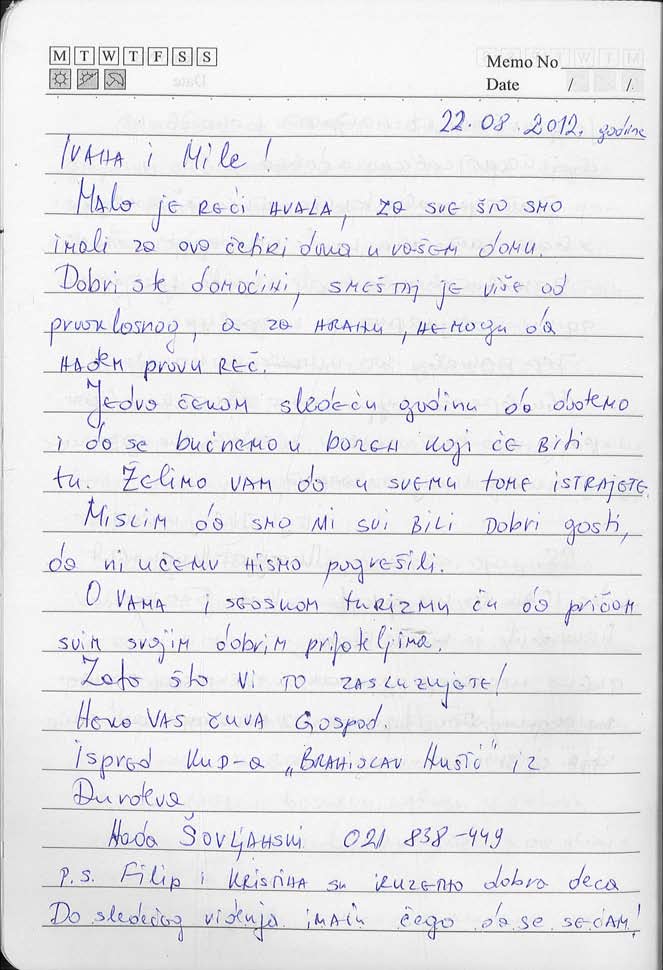 M T W T F S S
Memo No
Date / /
22.08.2012. godine
IVANA i Mile!
MALO JE REĆI HVALA, ZA SVE ŠTO SMO
imali za ova četiri dana u vašem domu.
Dobri ste domaćini, SMEŠTAJ je VIŠE od
prvoklasnog, a za HRANU, NEMOGU da
NAĐEM pravu REČ.
Jedva čekam sledeću godinu da dođemo
i da se bućnemo u bazen koji će BITI
tu. ŽELIMO VAM da u SVEMU TOME ISTRAJETE.
MISLIM da SMO MI SVI BILI DOBRI gosti,
da ni učemu NISMO pogrešili.
O VAMA i SEOSKOM TURIZMU ću da pričam
svim svojim dobrim prijateljima.
Zato što VI TO ZASLUZUJETE!
Neka VAS čuva Gospod
ispred KUD-a „BRANISLAV Nušić" iz
Đurđeva
Nada ŠOVLJANSKI 021 838-449
p.s. Filip i KRISTINA su IZUZETNO dobra deca
Do sledećeg viđenja imam čega da se sećam!